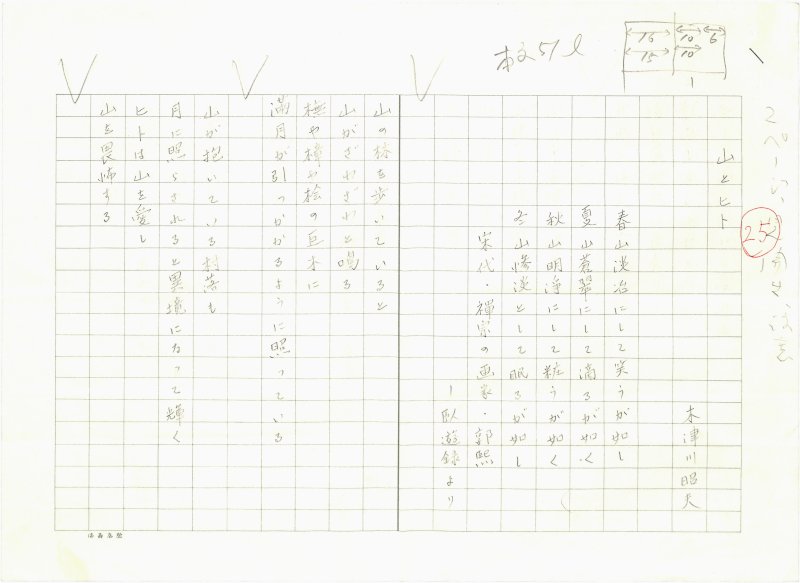 本文51l
16
10
6
15
10
1
25
山とヒト
木津川昭夫
春山淡冶にして笑うが如し
夏山蒼翠にして滴るが如く
秋山明浄にして粧うが如く
冬山惨淡として眠るが如し
宋代・禅宗の画家・郭熙
ー臥遊録より
山の林を歩いていると
山がざわざわと鳴る
橅や樟や桧の巨木に
満月が引っかかるように照っている
山が抱いている村落も
月に照らされると異境になって輝く
ヒトは山を愛し
山を畏怖する